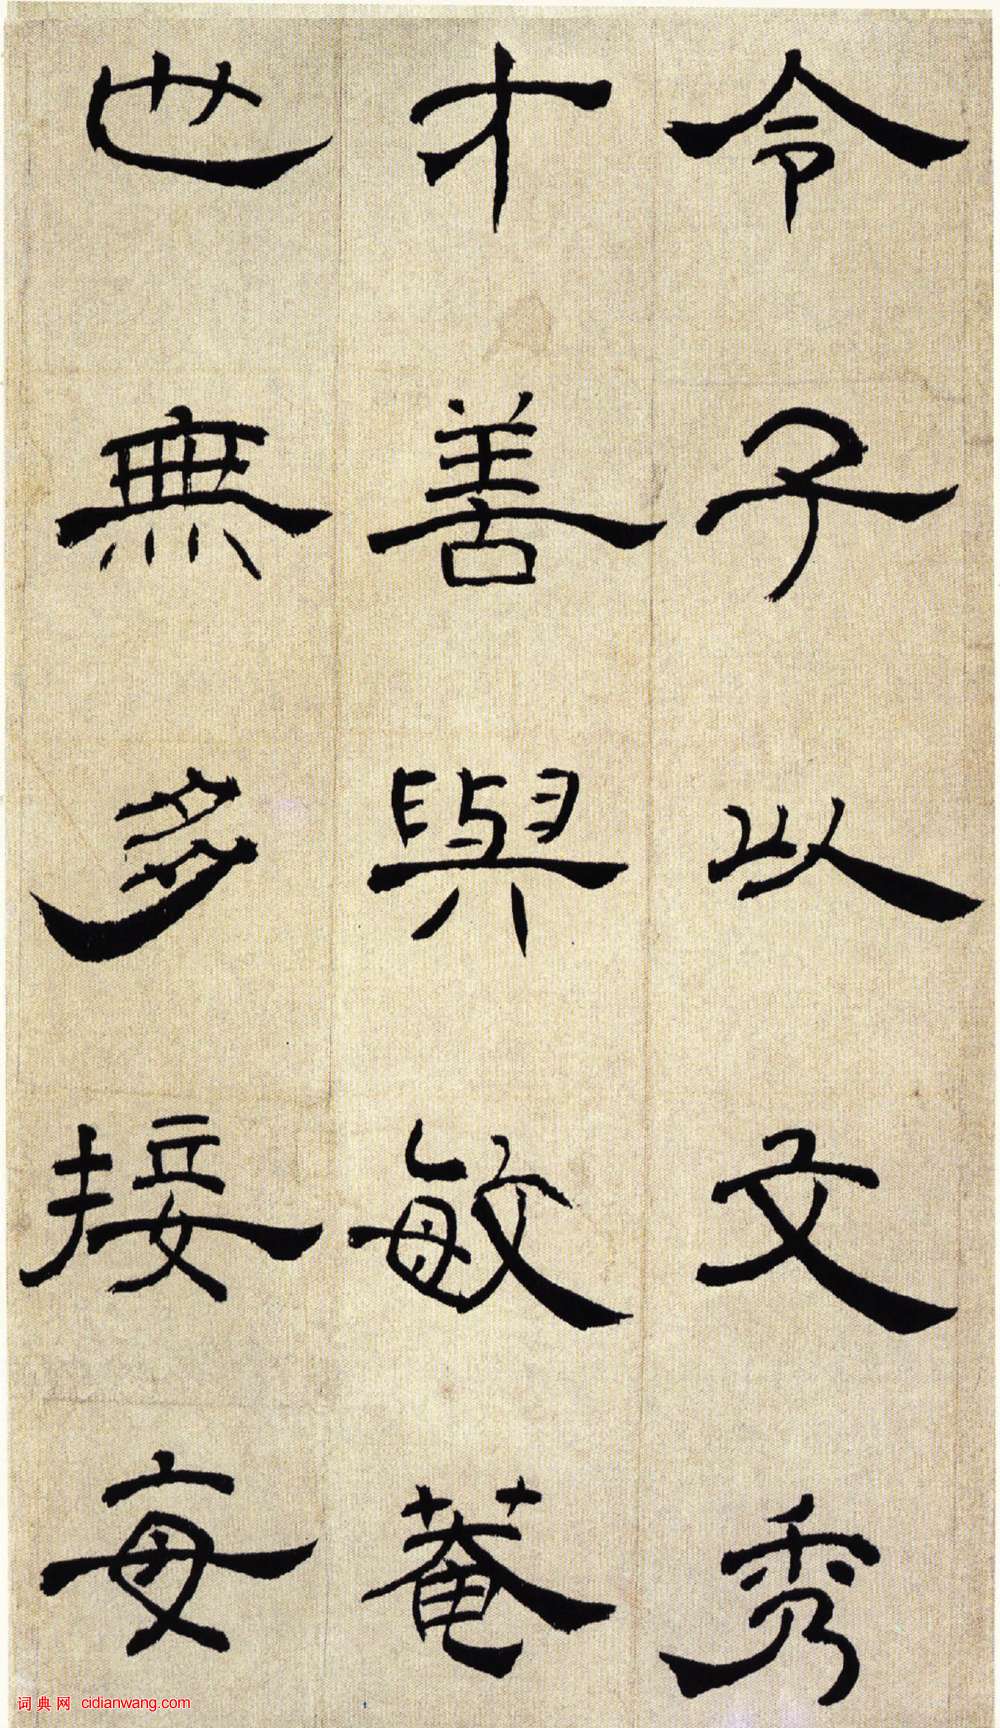 令子以文秀
才善與敏菴
世無多接每
词典网 cidianwang.com